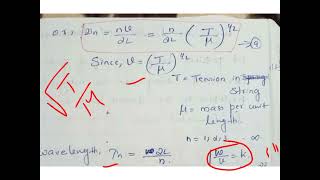 νn = nv/2L = n/2L (T/μ)^1/2 → (9)
Since, v = (T/μ)^1/2
√T/μ
T = Tension in string
μ = mass per unit
length.
n = 1, 2, 3, ... ∞
wavelength, λn = 2L/n
ω/v = k